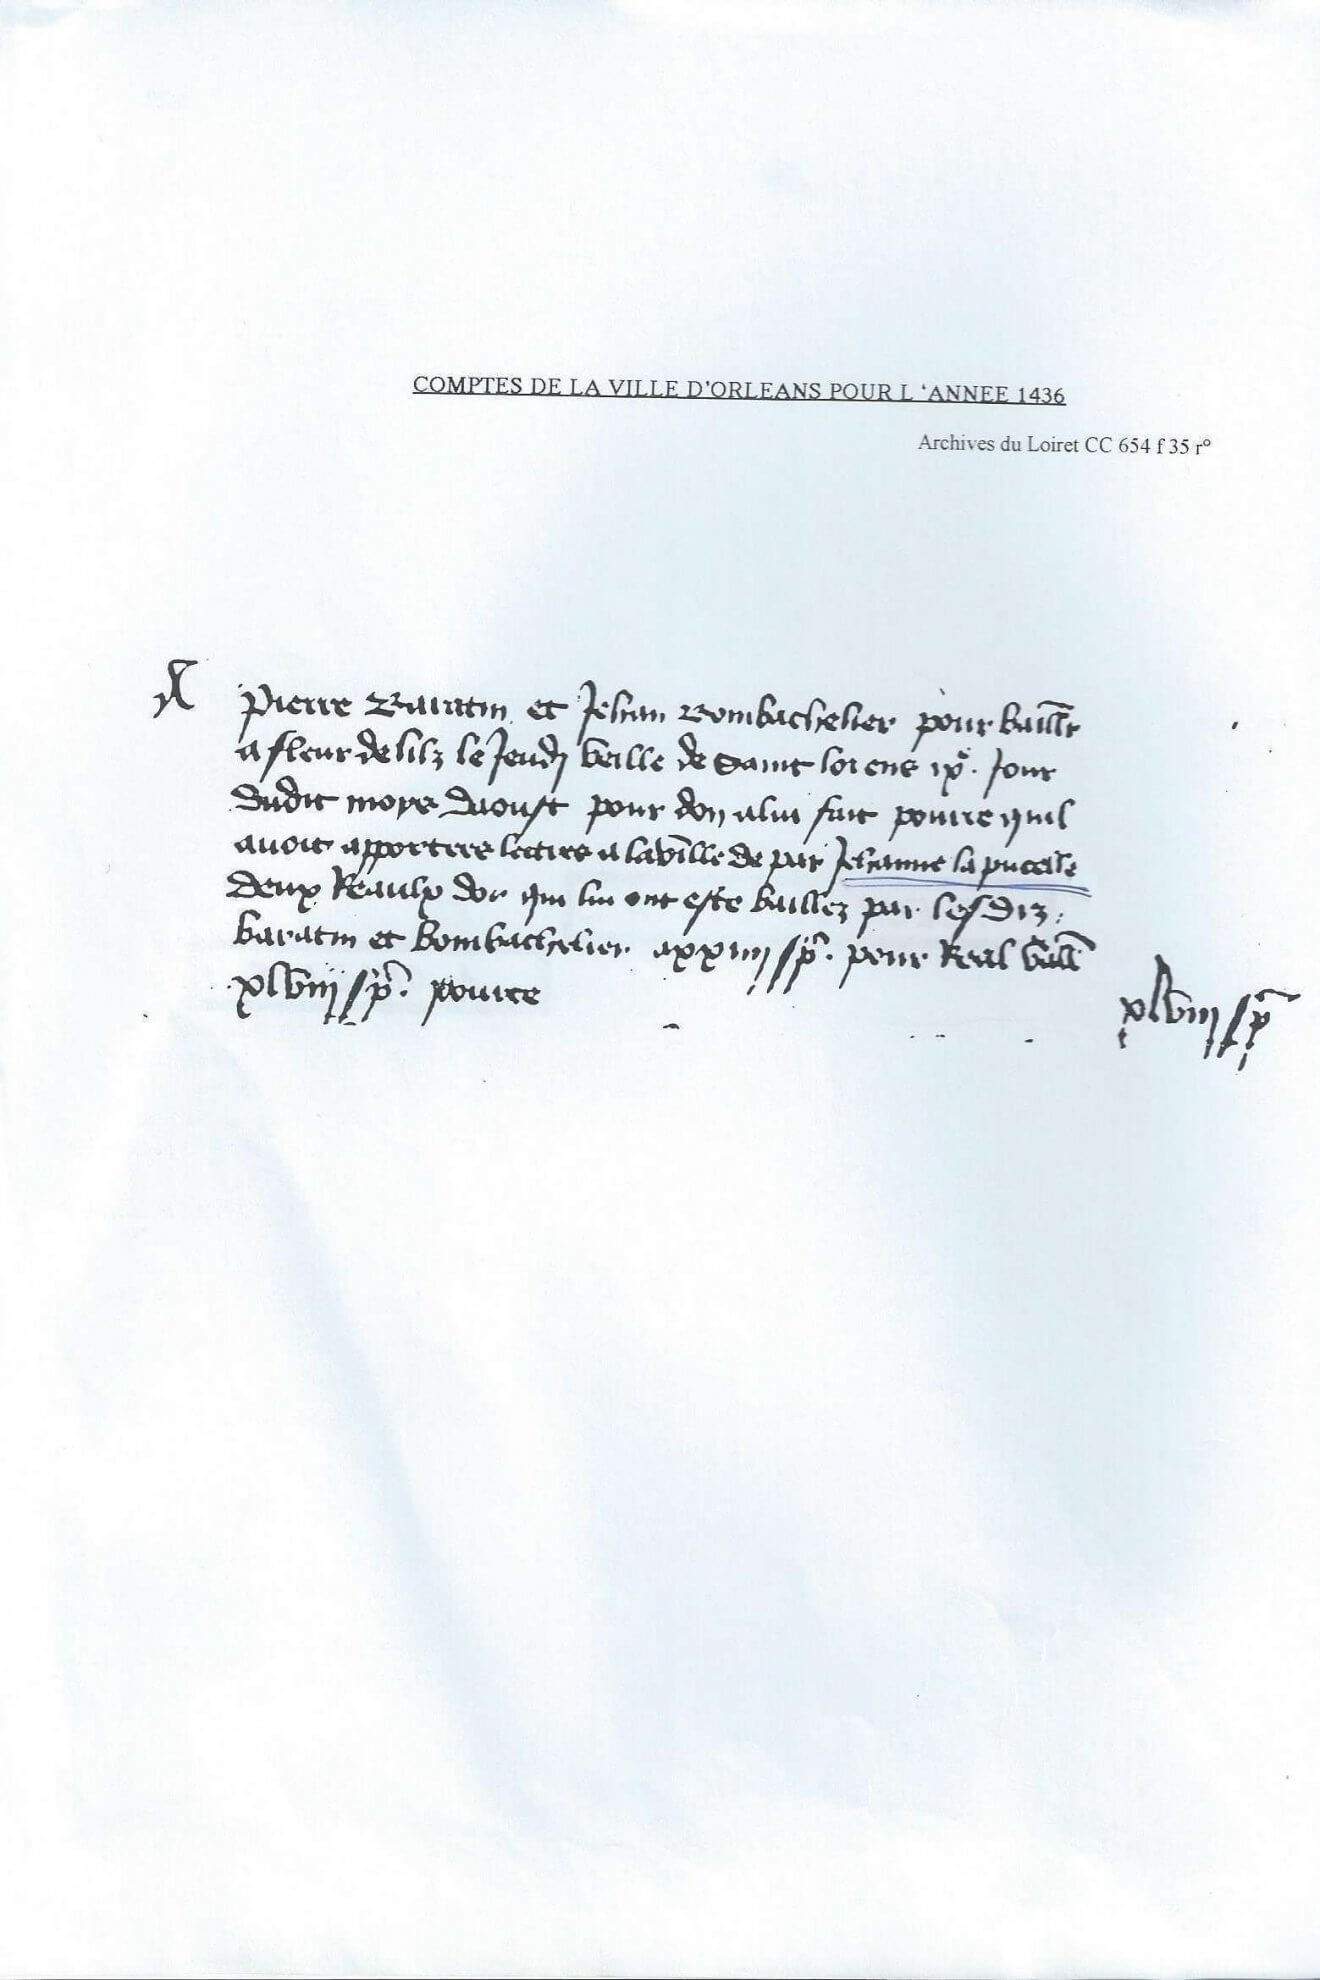 COMPTES DE LA VILLE D'ORLEANS POUR L 'ANNEE 1436
Archives du Loiret CC 654 f 35 r°
A Pierre Baratin et Jehan Bombachelier pour baillr
a fleur de lilz le Jeudi veille de Saint lorens ixe. Jour
dudit moys daoust pour don alui fait pource quil
avoit apportees lectres a la ville de par Jehanne la pucelle
deux Reaulx dor qui lui ont este baillez par les diz
baratin et Bombachelier a xxiiij s p. pour Real vall
xlviij s p. pource
xlviij s p